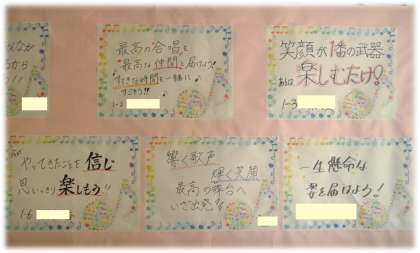 最高の合唱を
最高な仲間と届けよう!
すてきな時間を一緒に
すごそう!!
1-2
笑顔が1番の武器
あとは
楽しむだけ!
1-3
やってきたことを信じ
思いっきり楽しもう!!
1-6
響く歌声
輝く笑顔
最高の舞台へ
いざ出発!!
一生懸命な
姿を届けよう!